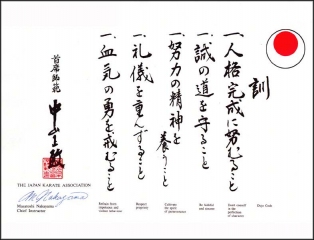 訓
一、人格完成に努むること
一、誠の道を守ること
一、努力の精神を
養うこと
一、礼儀を重んずること
一、血気の勇を戒むること
首席師範
中山正敏
THE JAPAN KARATE ASSOCIATION
M. Nakayama
Masatoshi Nakayama
Chief Instructor
Refrain from
impetuous and
violent behaviour
Respect
propriety
Cultivate
the spirit
of perseverance
Be faithful
and sincere
Exert oneself
in the
perfection
of character
Dojo Kun